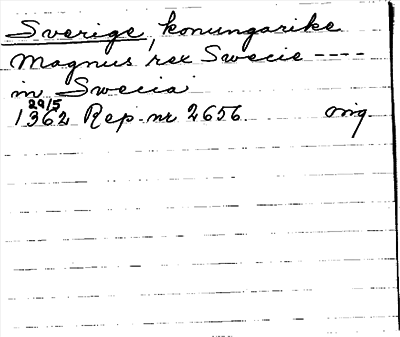 Sverige, konungarike
Magnus rex Swecie ----
in Swecia
29/5
1362 Rep. nr 2656. orig.